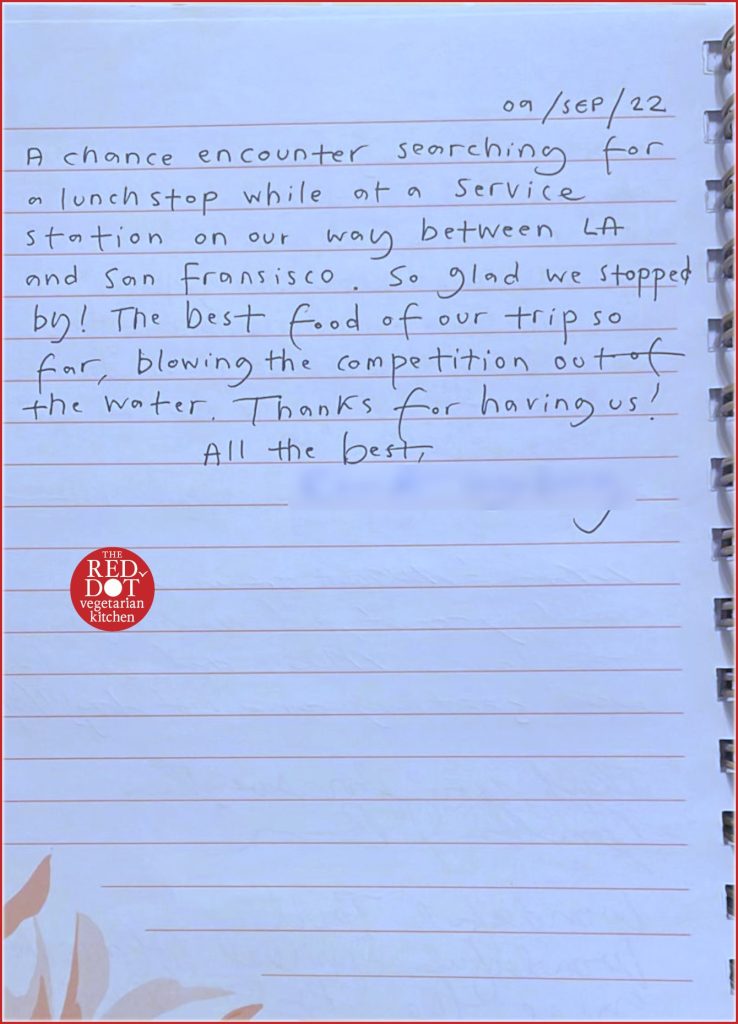 09/SEP/22
A chance encounter searching for
a lunch stop while at a service
station on our way between LA
and San Fransisco. So glad we stopped
by! The best food of our trip so
far, blowing the competition out of
the water. Thanks for having us!
All the best,
THE
RED
DOT
vegetarian
kitchen